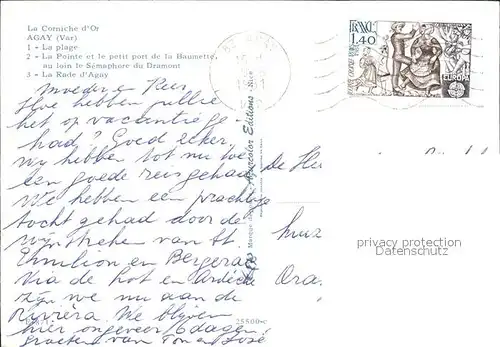 La Corniche d'Or
AGAY (Var)
1 - La plage
2 - La Pointe et le petit port de la Baumette,
au loin le Sémaphore du Dramont
3 - La Rade d'Agay
FRANCE
1,40
EUROPA
Moeder & Kees,
Hoe hebben jullie
het op vacantie ge-
had? Goed zeker,
wij hebben tot nu toe
een goede reis gehad
We hebben een prachtige
tocht gehad door de
wijnstreken van St.
Emilion en Bergerac
Via de Lot en Ardèche
zijn we nu aan de
Rivièra. We blijven
hier ongeveer 6 dagen!
Groeten van Ton en José
de He
huiz
Ora
Editions
25500-C
privacy protection
VERORDNUNG